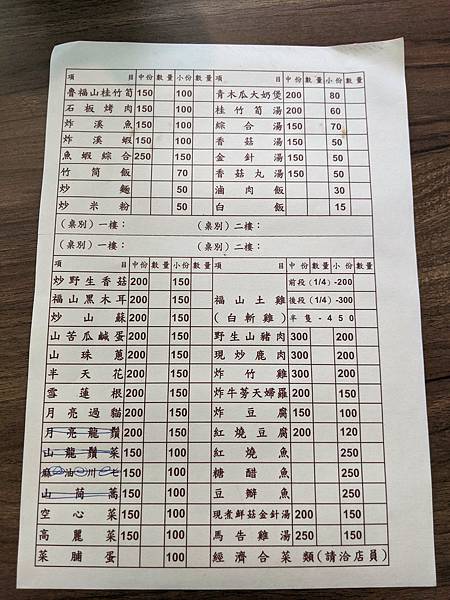 項 目 中份 數量 小份 數量 項 目 中份 數量 小份 數量
魯福山桂竹筍 150 100 青木瓜大奶煲 200 80
石板烤肉 150 100 桂竹筍湯 200 60
炸溪魚 150 100 綜合湯 150 70
炸溪蝦 150 100 香菇湯 150 50
魚蝦綜合 250 150 金針湯 150 50
竹筒飯 70 香菇丸湯 150 50
炒麵 50 滷肉飯 30
炒米粉 50 白飯 15
(桌別)一樓: (桌別)二樓:
(桌別)一樓: (桌別)二樓:
項 目 中份 數量 小份 數量 項 目 中份 數量 小份 數量
炒野生香菇 200 150 前段(1/4)-200
福山黑木耳 200 150 福山土雞 後段(1/4)-300
炒山蘇 200 150 (白斬雞) 半隻-450
山苦瓜鹹蛋 200 150 野生山豬肉 300 200
山珠蔥 200 150 現炒鹿肉 300 200
半天花 200 150 炸竹雞 300 200
雪蓮根 200 150 炸牛蒡天婦羅 200 150
月亮過貓 200 150 炸豆腐 150 100
月亮龍鬚 200 150 紅燒豆腐 200 120
山龍鬚菜 150 100 紅燒魚 250
麻油川七 150 100 糖醋魚 250
山茼蒿 150 100 豆瓣魚 250
空心菜 150 100 現煮鮮菇金針湯 200 150
高麗菜 150 100 馬告雞湯 250 150
菜脯蛋 100 經濟合菜類(請洽店員)